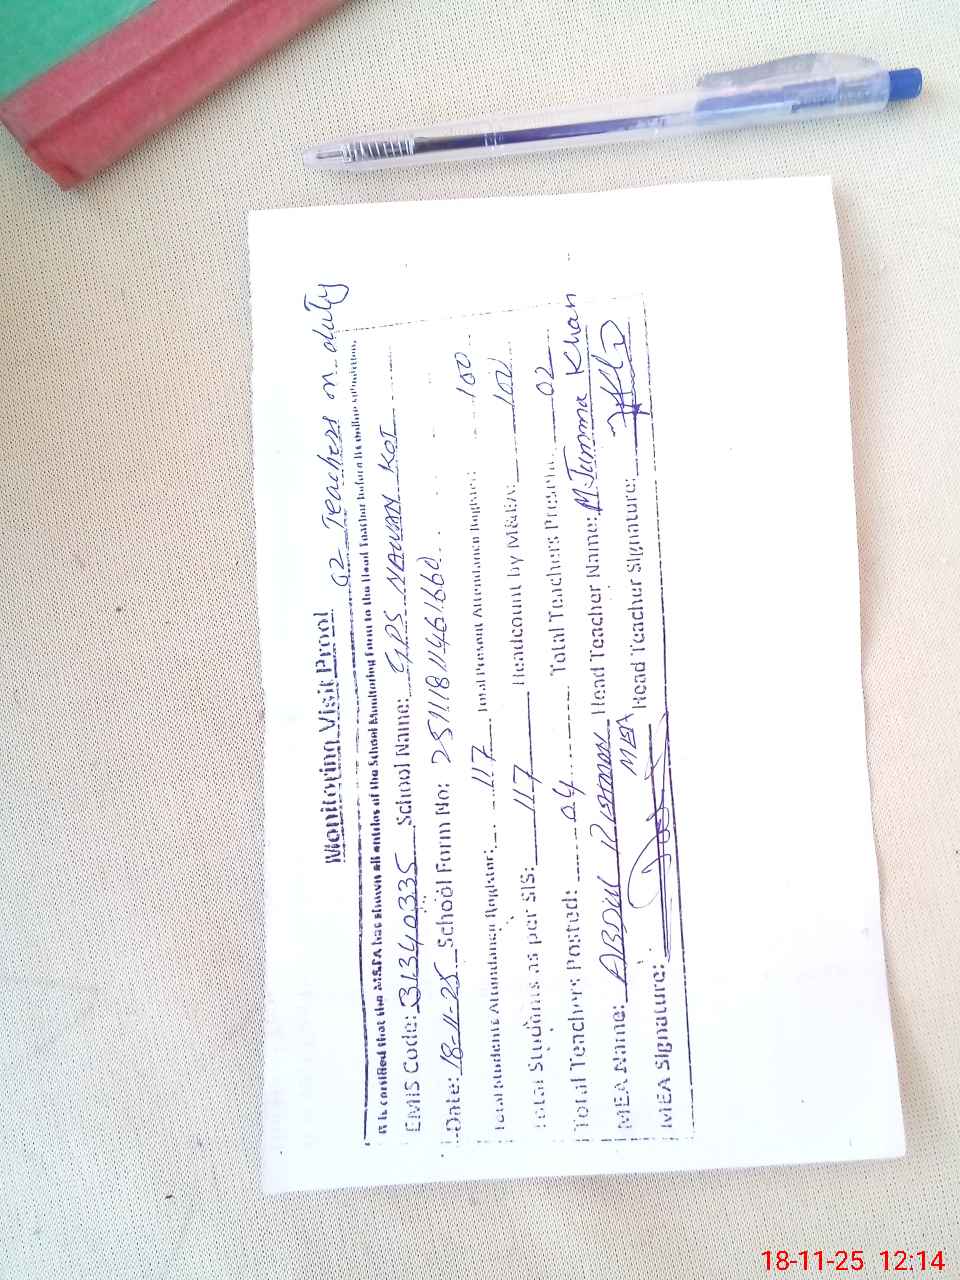 Monitoring Visit Proof 02 Teachers on duty
It is certified that the MEA has shown all entries of the School Monitoring Form to the Head Teacher before its online submission.
EMIS Code: 31340335 School Name: GPS NAWAN KOT
Date: 18-11-25 School Form No: 2511181461660
Total Students Attendance Register: 117 Total Present Attendance Register: 100
Total Students as per SIS: 117 Headcount by MEA: 100
Total Teachers Posted: 04 Total Teachers Present: 02
MEA Name: ABDUL REHMAN Head Teacher Name: M. Jumma Khan
MEA Signature: MEA Head Teacher Signature:
18-11-25 12:14